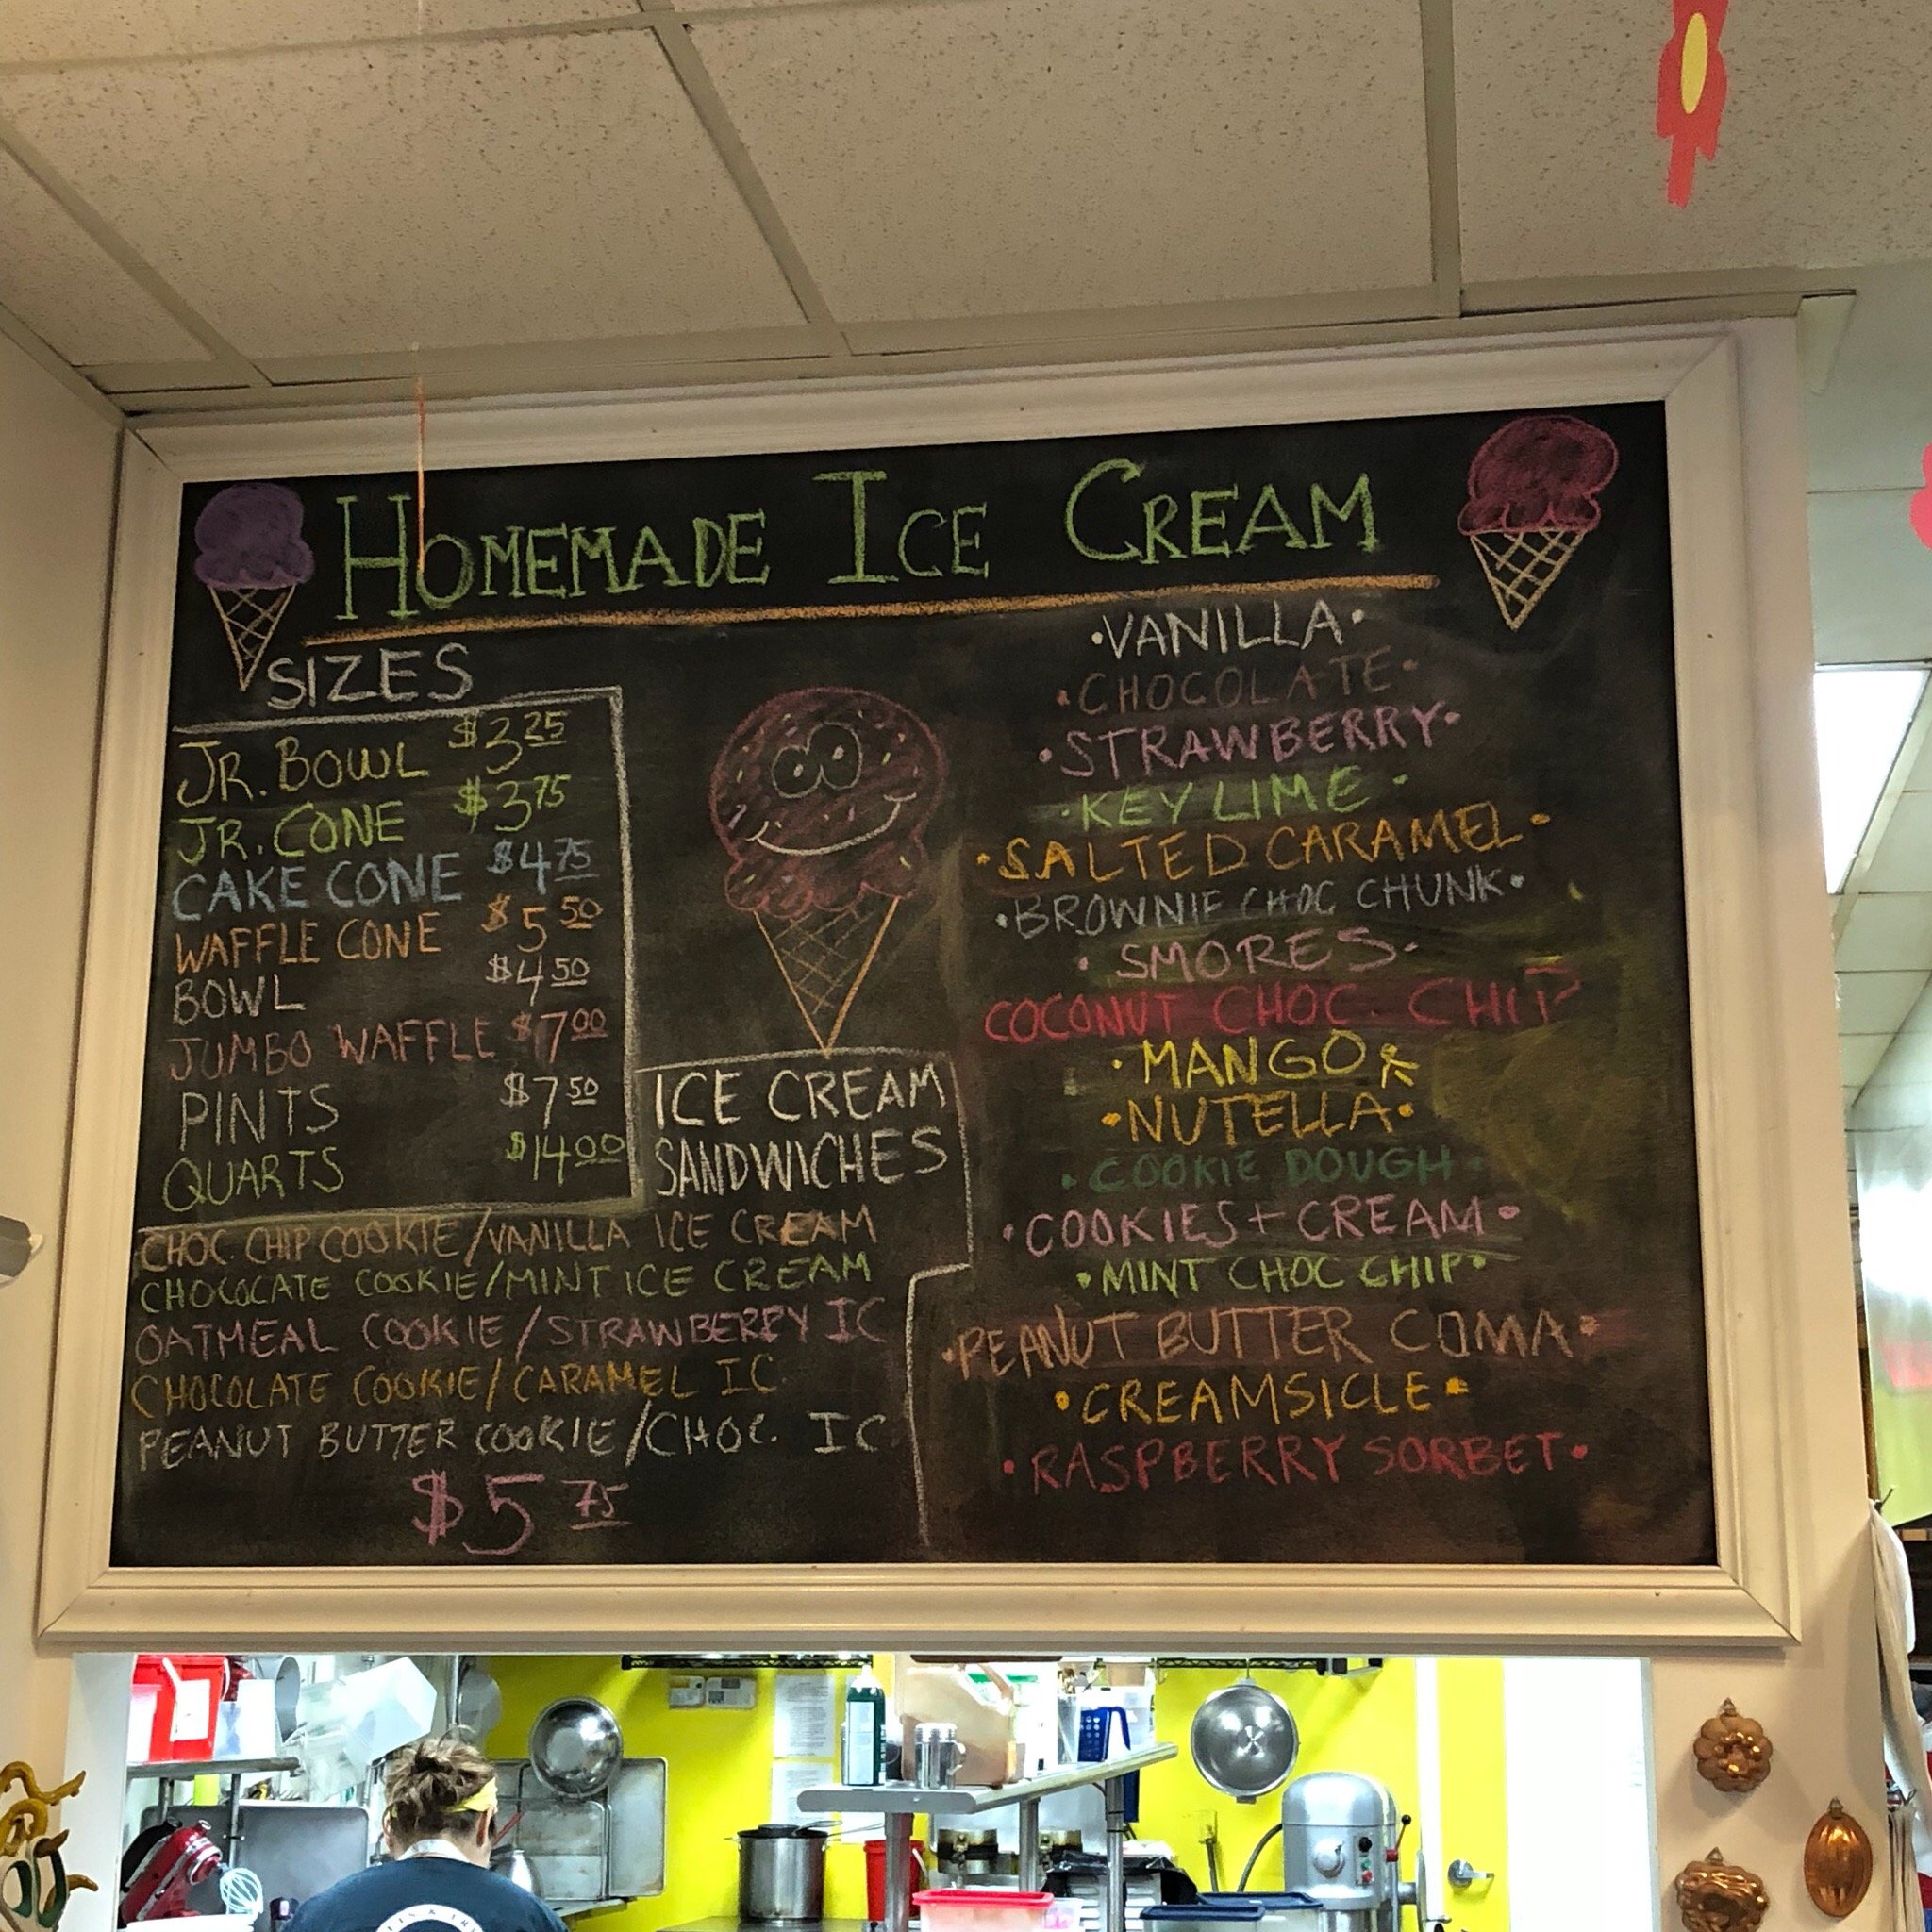 HOMEMADE ICE CREAM
SIZES
JR. BOWL $3.25
JR. CONE $3.75
CAKE CONE $4.75
WAFFLE CONE $5.50
BOWL $4.50
JUMBO WAFFLE $7.00
PINTS $7.50
QUARTS $14.00
ICE CREAM
SANDWICHES
CHOC. CHIP COOKIE/VANILLA ICE CREAM
CHOCOLATE COOKIE/MINT ICE CREAM
OATMEAL COOKIE/STRAWBERRY IC
CHOCOLATE COOKIE/CARAMEL IC
PEANUT BUTTER COOKIE/CHOC. IC
$5.75
•VANILLA•
•CHOCOLATE•
•STRAWBERRY•
•KEY LIME•
•SALTED CARAMEL•
•BROWNIE CHOC CHUNK•
•SMORES•
COCONUT CHOC. CHIP
•MANGO
•NUTELLA•
•COOKIE DOUGH•
•COOKIES+CREAM•
•MINT CHOC CHIP•
•PEANUT BUTTER COMA•
•CREAMSICLE•
•RASPBERRY SORBET•